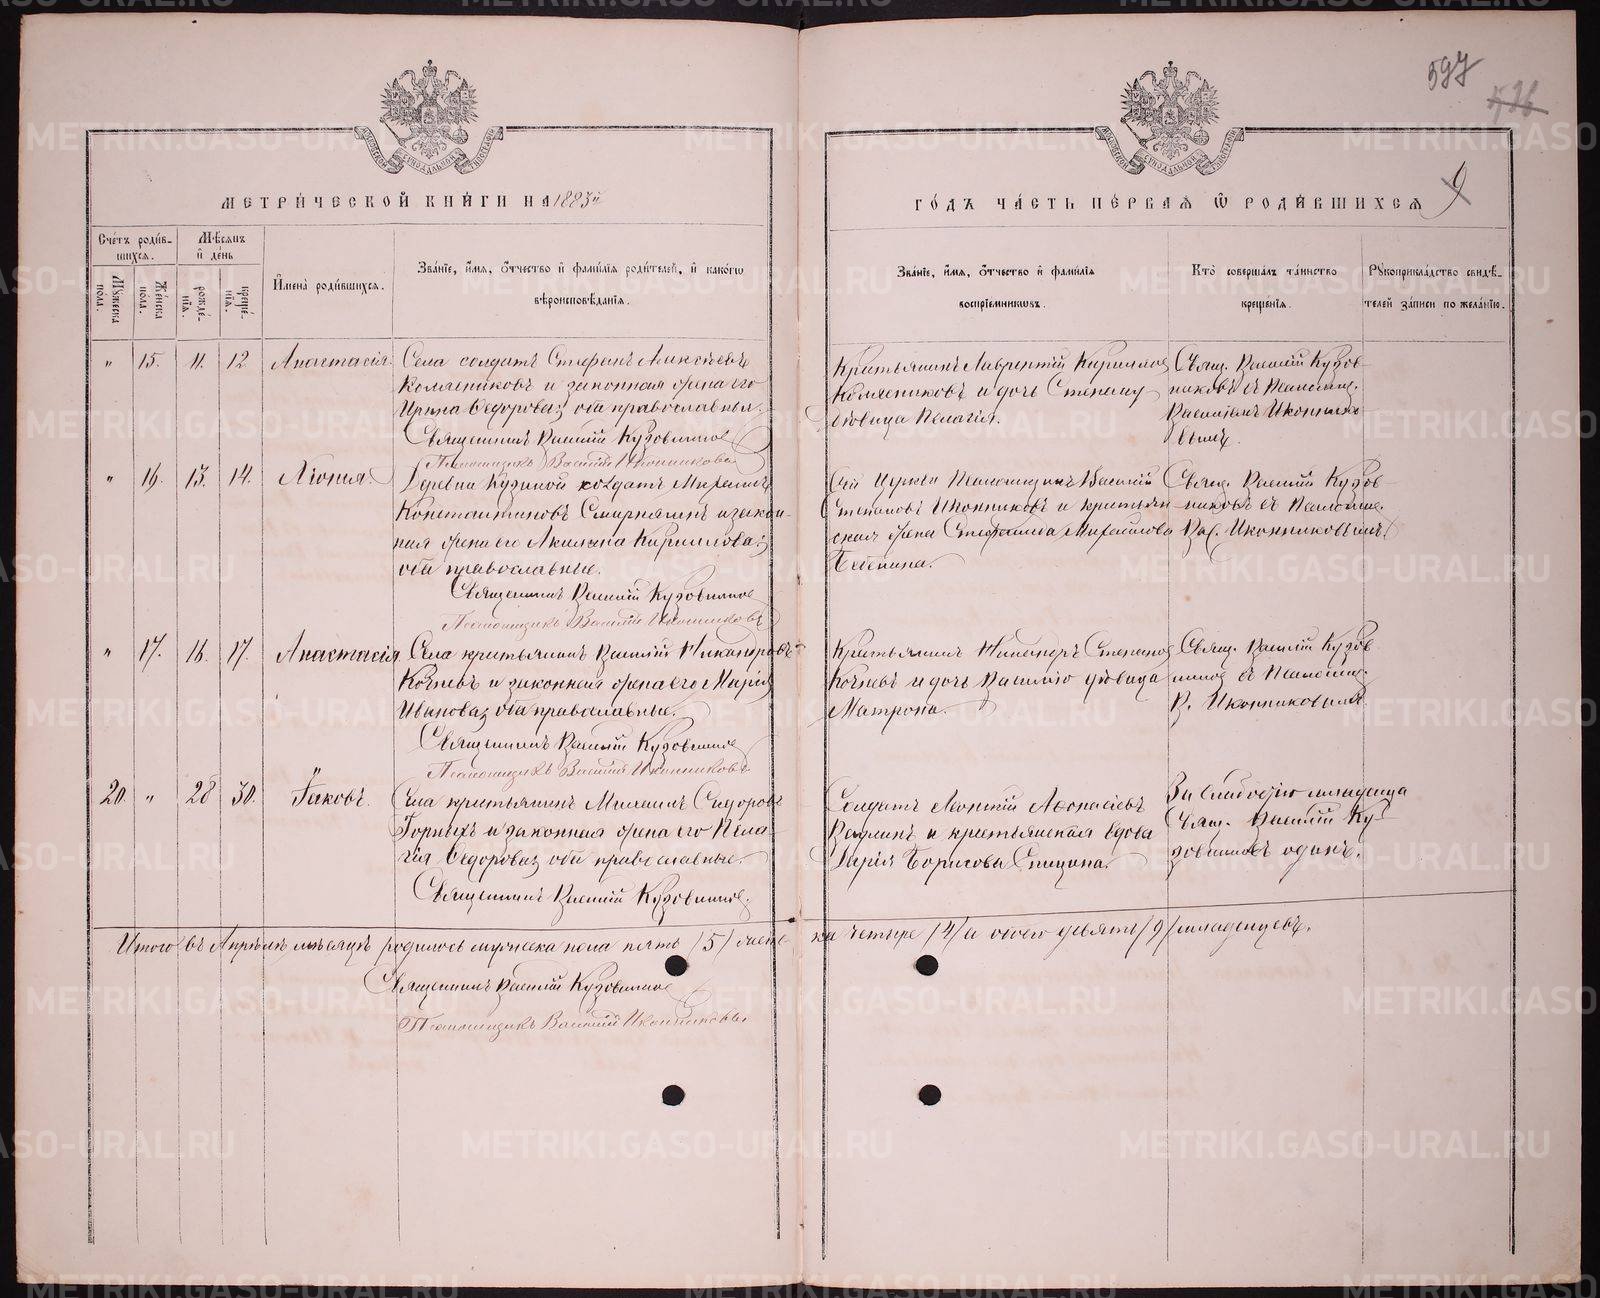 597
576
МЕТРИ́ЧЕСКОЙ КНИ́ГИ НА 1883й
ГО́ДЪ ЧА́СТЬ ПЕ́РВАЯ Ѡ РОДИ́ВШИХСЯ
9
Сче́тъ роди́в-
шихся.
Мѣ́сяцъ
и де́нь
Мꙋ́жеска
по́ла.
Же́нска
по́ла.
рожде́-
нїя.
креще́-
нїя.
Имена̀ роди́вшихся.
Зва́нїе, и́мя, о́тчество и фами́лїя роди́телей, и како́гѡ
вѣроисповѣ́данїя.
Зва́нїе, и́мя, о́тчество и фами́лїя
воспрїе́мникѡвъ.
Кто̀ соверша́лъ та́инство
креще́нїя.
Рꙋкоприкла́дство свидѣ́-
телей за́писи по жела́нїю.
" 15. 11. 12 Анастасія
Села солдатъ Стефанъ Алексѣевъ
Комлениковъ и законная жена его
Ирина Ѳедорова; оба православные.
Священникъ Василій Кузовниковъ
Псаломщикъ Василій Иконниковъ
Крестьянинъ Лаврентій Кириллов
Комлениковъ и дочь Степану
дѣвица Пелагія.
Свящ. Василій Кузов-
никовъ съ Псаломщ.
Василіемъ Иконнико-
вымъ.
" 16. 13. 14. Хіонія
Деревни Кузиной солдатъ Михаилъ
Константиновъ Смирнягинъ и закон-
ная жена его Акилина Кириллова;
оба православные.
Священникъ Василій Кузовниковъ
Псаломщикъ Василій Иконниковъ
Сей Церкви Псаломщикъ Василій
Степановъ Иконниковъ и крестьян-
ская жена Стефанида Михайлова
Бебенина.
Свящ. Василій Кузов-
никовъ съ Псаломщ.
Вас. Иконниковымъ.
" 17. 16. 17. Анастасія
Села крестьянинъ Василій Никаноровъ
Кочневъ и законная жена его Марія
Иванова; оба православные.
Священникъ Василій Кузовниковъ
Псаломщикъ Василій Иконниковъ
Крестьянинъ Никаноръ Степанов
Кочневъ и дочь Василію дѣвица
Матрона.
Свящ. Василій Кузов-
никовъ съ Псаломщ.
В. Иконниковымъ.
20. " 28 30. Іаковъ.
Села крестьянинъ Михаилъ Сидоровъ
Горныхъ и законная жена его Пела-
гія Ѳедорова; оба православные.
Священникъ Василій Кузовниковъ.
Солдатъ Леонтій Аѳонасіевъ
и крестьянская вдова
Марія Борисова Спицына.
За слабостію младенца
Свящ. Василій Ку-
зовниковъ одинъ.
Итого въ Апрѣлѣ мѣсяцѣ родилось мужеска пола пять /5/ женс-
ка четыре /4/ а обоего девять /9/ младенцевъ.
Священникъ Василій Кузовниковъ
Псаломщикъ Василій Иконниковъ.
METRIKI.GASO-URAL.RU